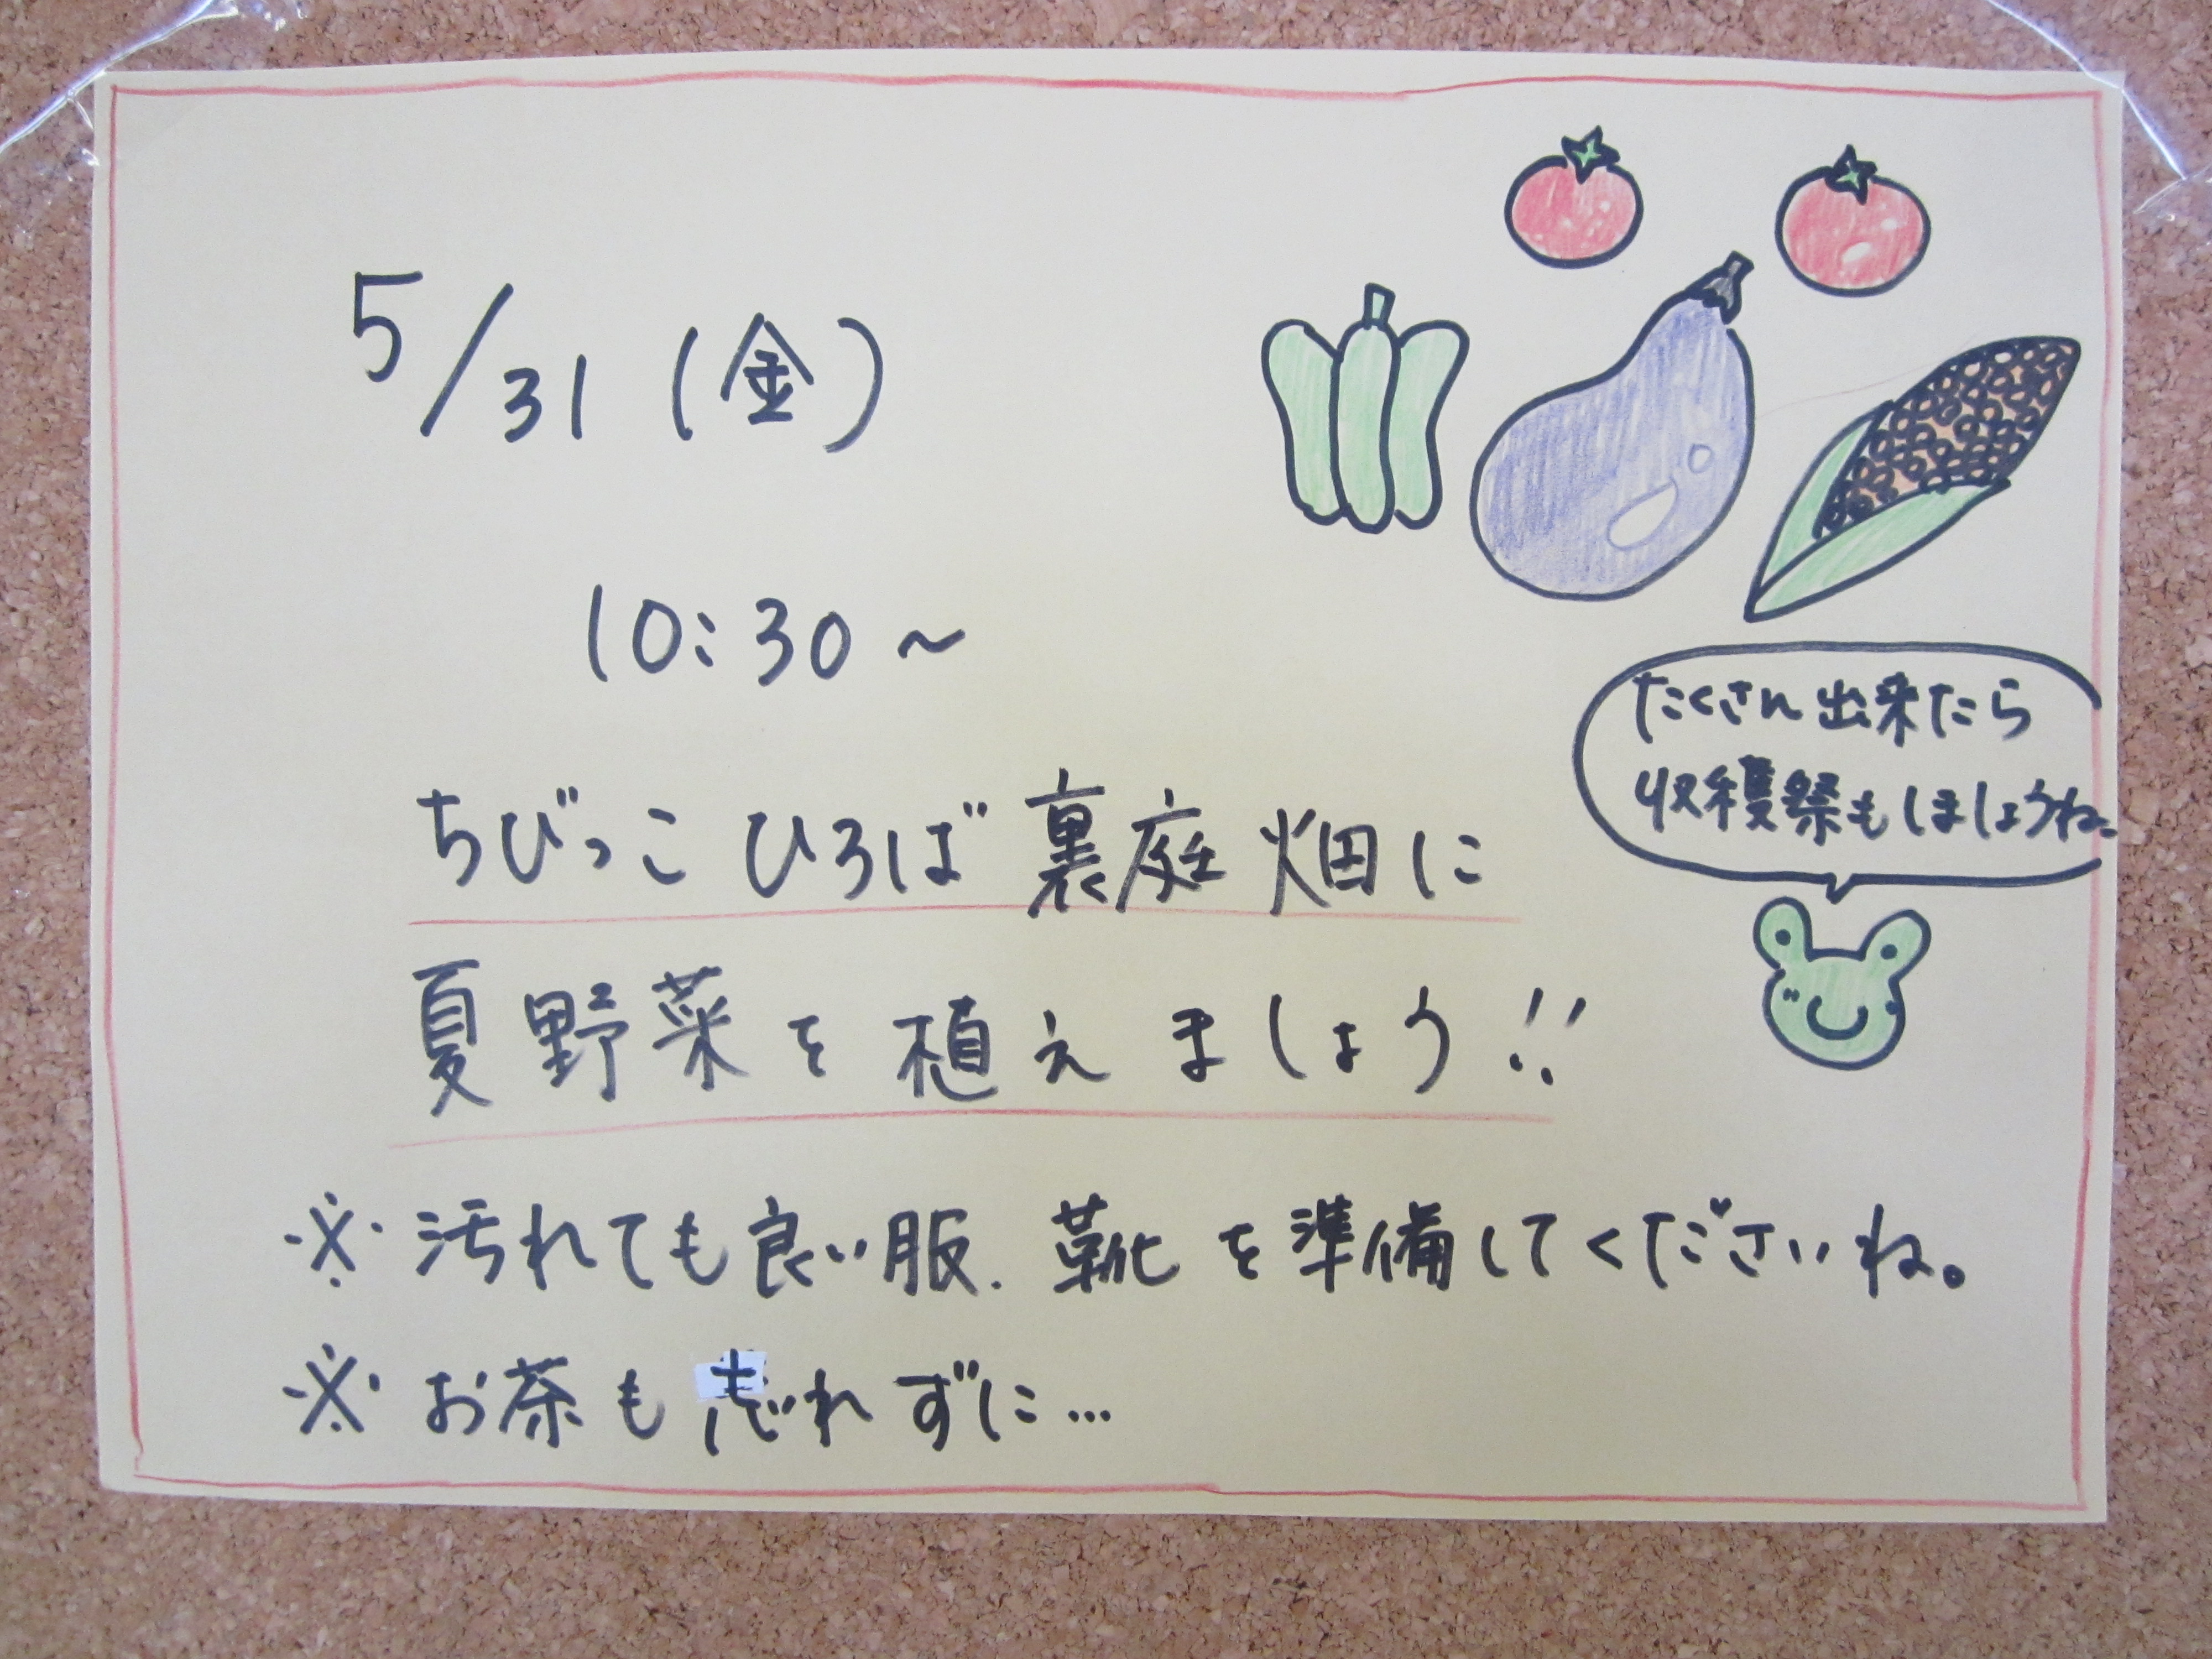 5/31(金)
10:30～
たくさん出来たら
収穫祭もしましょうね。
ちびっこひろば裏庭畑に
夏野菜を植えましょう!!
※汚れても良い服、靴を準備してくださいね。
※お茶も忘れずに…